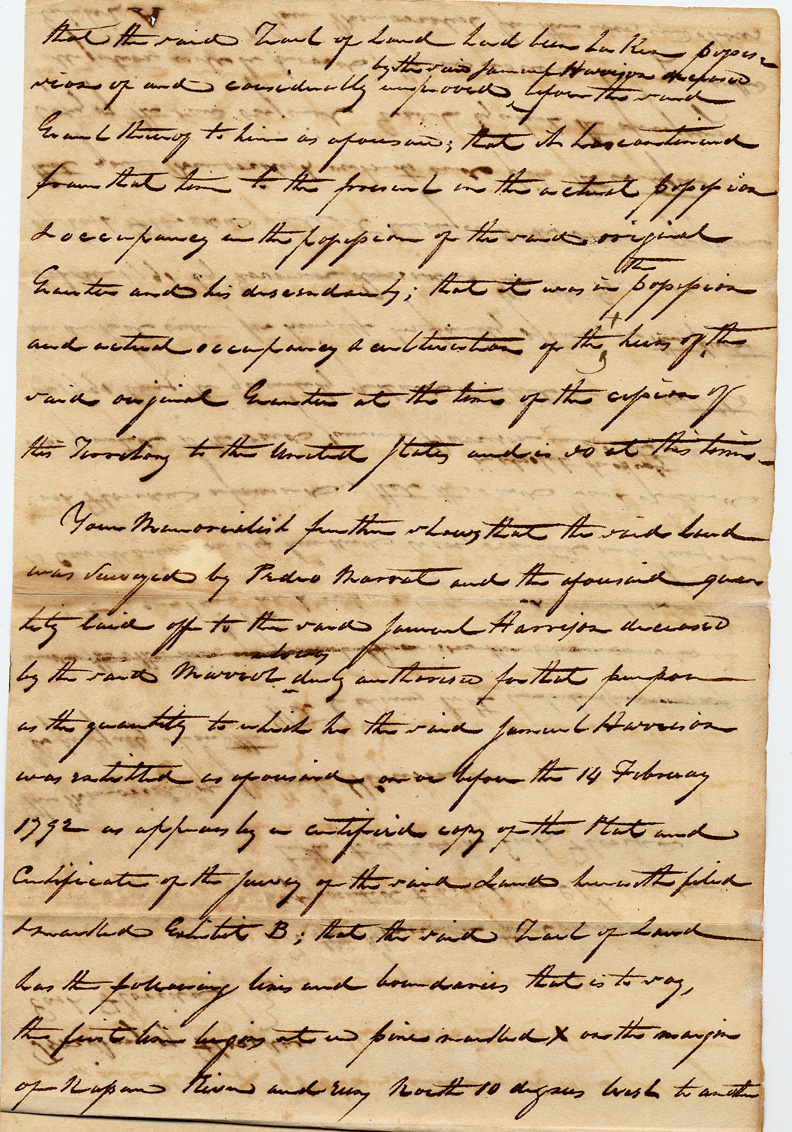 that the said Tract of Land had been taken posses-
by the said Samuel Harrison deceased
sion of and considerably improved before the said
Grant thereof to him as aforesaid; that it has continued
from that time to the present in the actual possession
& occupancy in the possession of the said original
the
Grantee and his descendants; that it was in possession
and actual occupancy & cultivation of the heirs of the
said original Grantee at the time of the cession of
this Territory to the United States and is so at this time_
Your Memorialist further shews that the said land
was surveyed by Pedro Marrot and the aforesaid quan
tity laid off to the said Samuel Harrison deceased
by the said Marrot duly authorised for that purpose
as the quantity to which he the said Samuel Harrison
was entitled as aforesaid on or before the 14 February
1792 as appears by a certified copy of the Plat and
Certificate of the Survey of the said Land herewith filed
& marked Exhibit B; that the said Tract of Land
has the following lines and boundaries that is to say,
the first line begins at a pine marked X on the margin
of Nassau River and runs North 10 degrees West to another